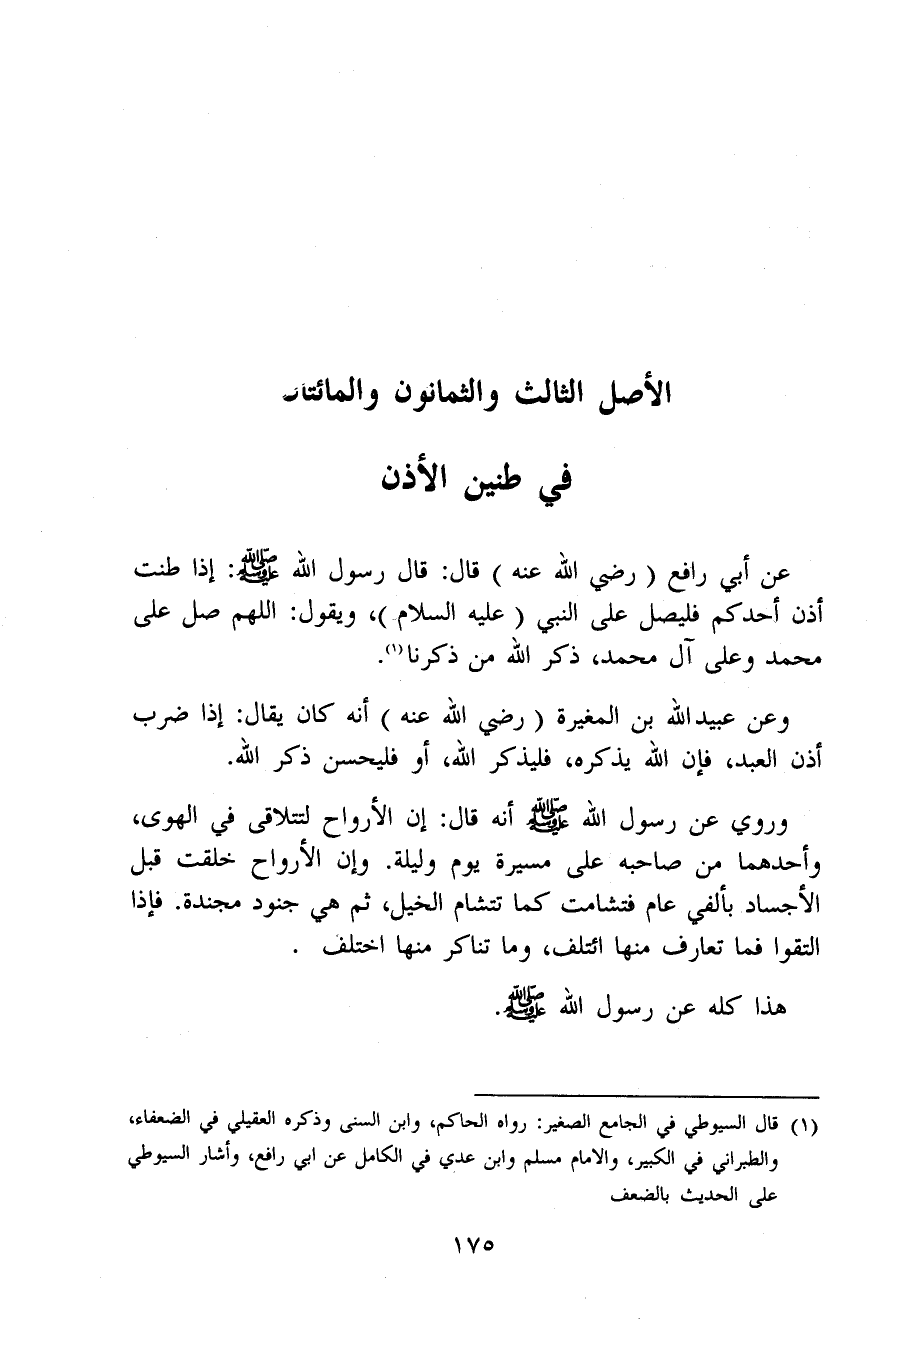 الأصل الثالث والثمانون والمائتان
في طنين الأذن
عن أبي رافع ( رضي الله عنه ) قال: قال رسول الله ﷺ: إذا طنت
أذن أحدكم فليصل على النبي ( عليه السلام )، ويقول: اللهم صل على
محمد وعلى آل محمد، ذكر الله من ذكرنا(١).
وعن عبيدالله بن المغيرة ( رضي الله عنه ) أنه كان يقال: إذا ضرب
أذن العبد، فإن الله يذكره، فليذكر الله، أو فليحسن ذكر الله.
وروي عن رسول الله ﷺ أنه قال: إن الأرواح لتتلاقى في الهوى،
وأحدهما من صاحبه على مسيرة يوم وليلة. وإن الأرواح خلقت قبل
الأجساد بألفي عام فتشامت كما تتشام الخيل، ثم هي جنود مجندة. فإذا
التقوا فما تعارف منها ائتلف، وما تناكر منها اختلف .
هذا كله عن رسول الله ﷺ.
(١) قال السيوطي في الجامع الصغير: رواه الحاكم، وابن السنى وذكره العقيلي في الضعفاء،
والطبراني في الكبير، والامام مسلم وابن عدي في الكامل عن ابي رافع، وأشار السيوطي
على الحديث بالضعف
١٧٥